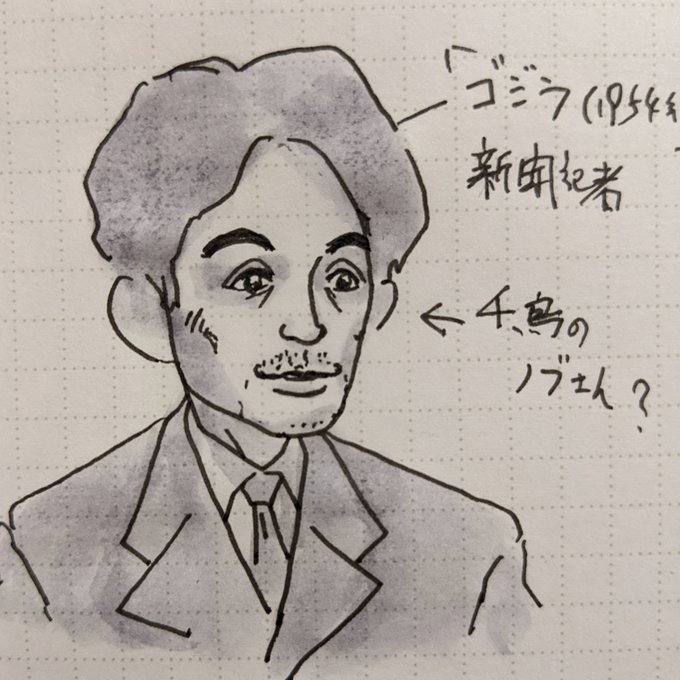 「ゴジラ(1954年
新聞記者
← 千鳥の
ノブさん?